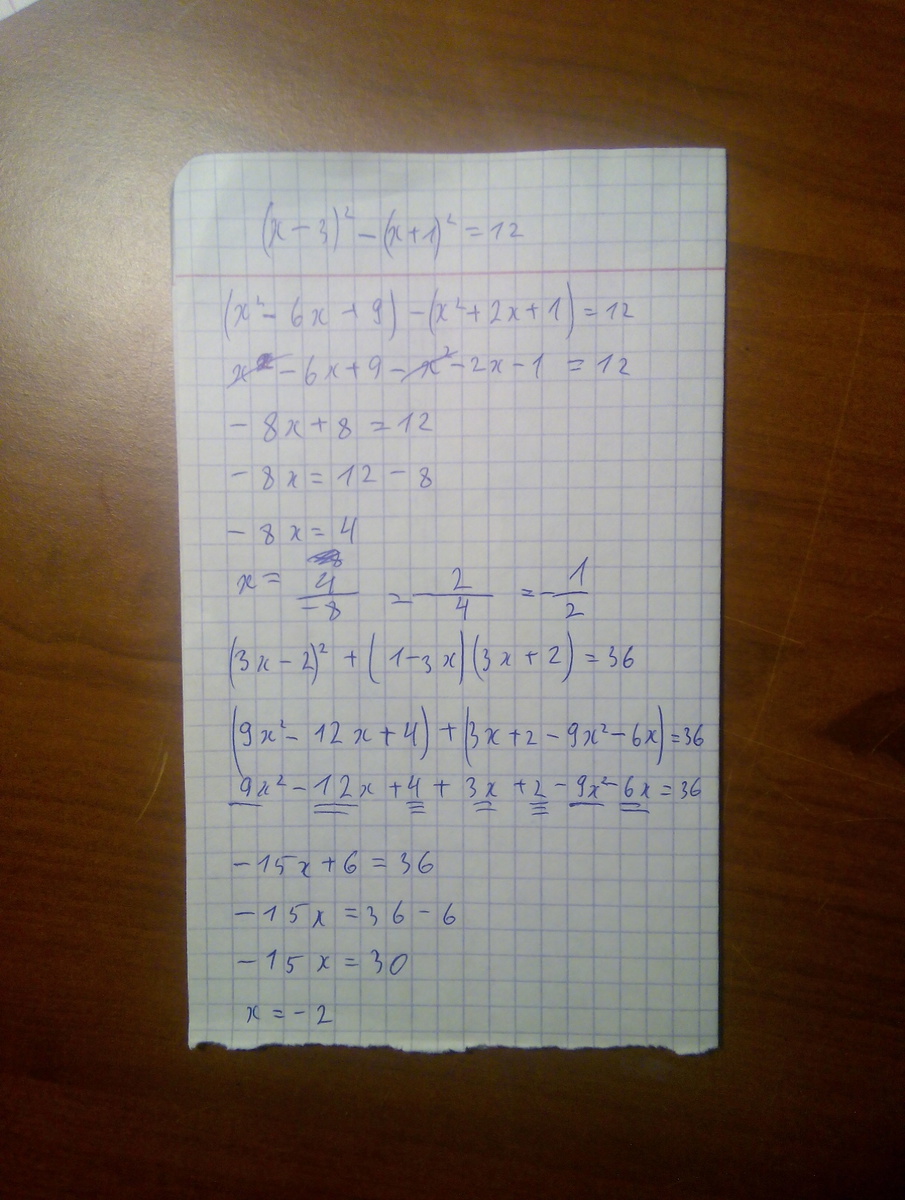 (x-3)² - (x+1)² = 12
(x² - 6x + 9) - (x² + 2x + 1) = 12
x² - 6x + 9 - x² - 2x - 1 = 12
- 8x + 8 = 12
- 8x = 12 - 8
- 8x = 4
x = 4/-8 = -2/4 = -1/2
(3x - 2)² + (1-3x)(3x + 2) = 36
(9x² - 12x + 4) + (3x + 2 - 9x² - 6x) = 36
9x² - 12x + 4 + 3x + 2 - 9x² - 6x = 36
- 15x + 6 = 36
- 15x = 36 - 6
- 15x = 30
x = - 2